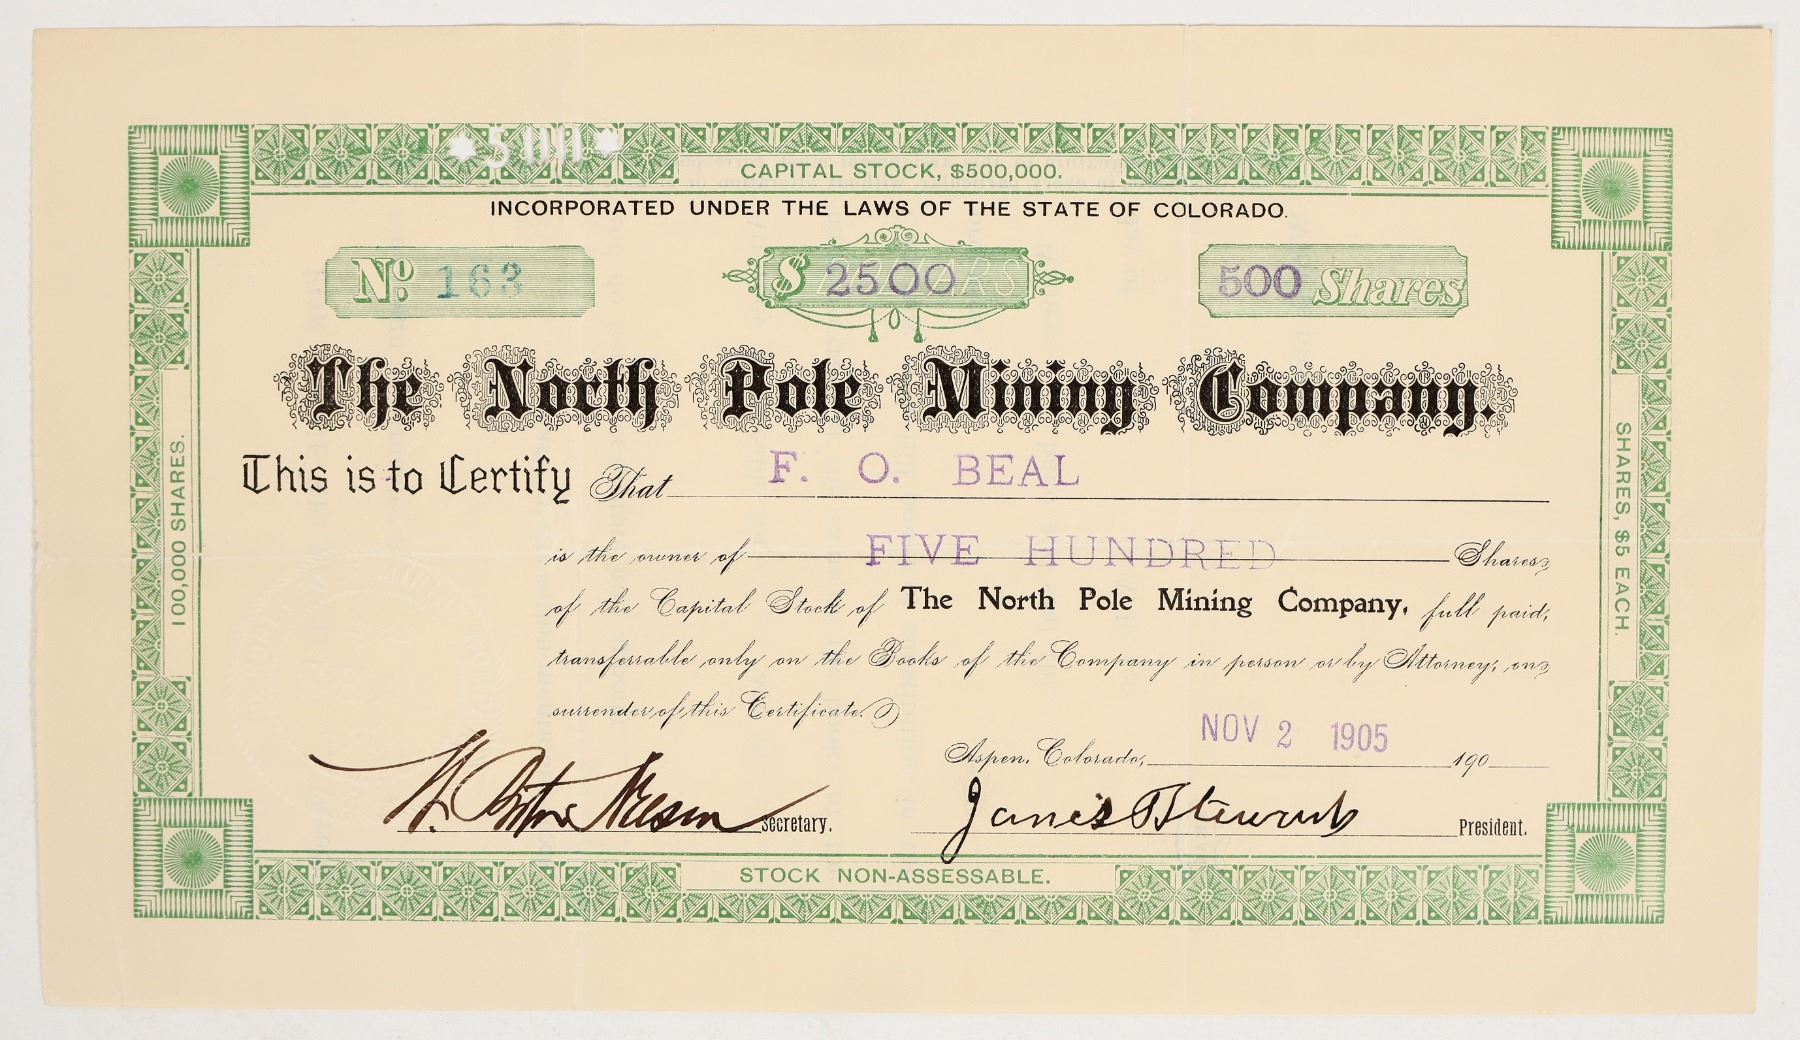 *500*
CAPITAL STOCK, $500,000.
INCORPORATED UNDER THE LAWS OF THE STATE OF COLORADO.
No. 163
$ 2500 DOLLARS
500 Shares
The North Pole Mining Company.
This is to Certify That F. O. BEAL
is the owner of FIVE HUNDRED Shares
of the Capital Stock of The North Pole Mining Company, full paid,
transferrable only on the Books of the Company in person or by Attorney, on
surrender of this Certificate.
Aspen, Colorado, NOV 2 1905 190
Secretary.
President.
100,000 SHARES.
SHARES, $5 EACH.
STOCK NON-ASSESSABLE.